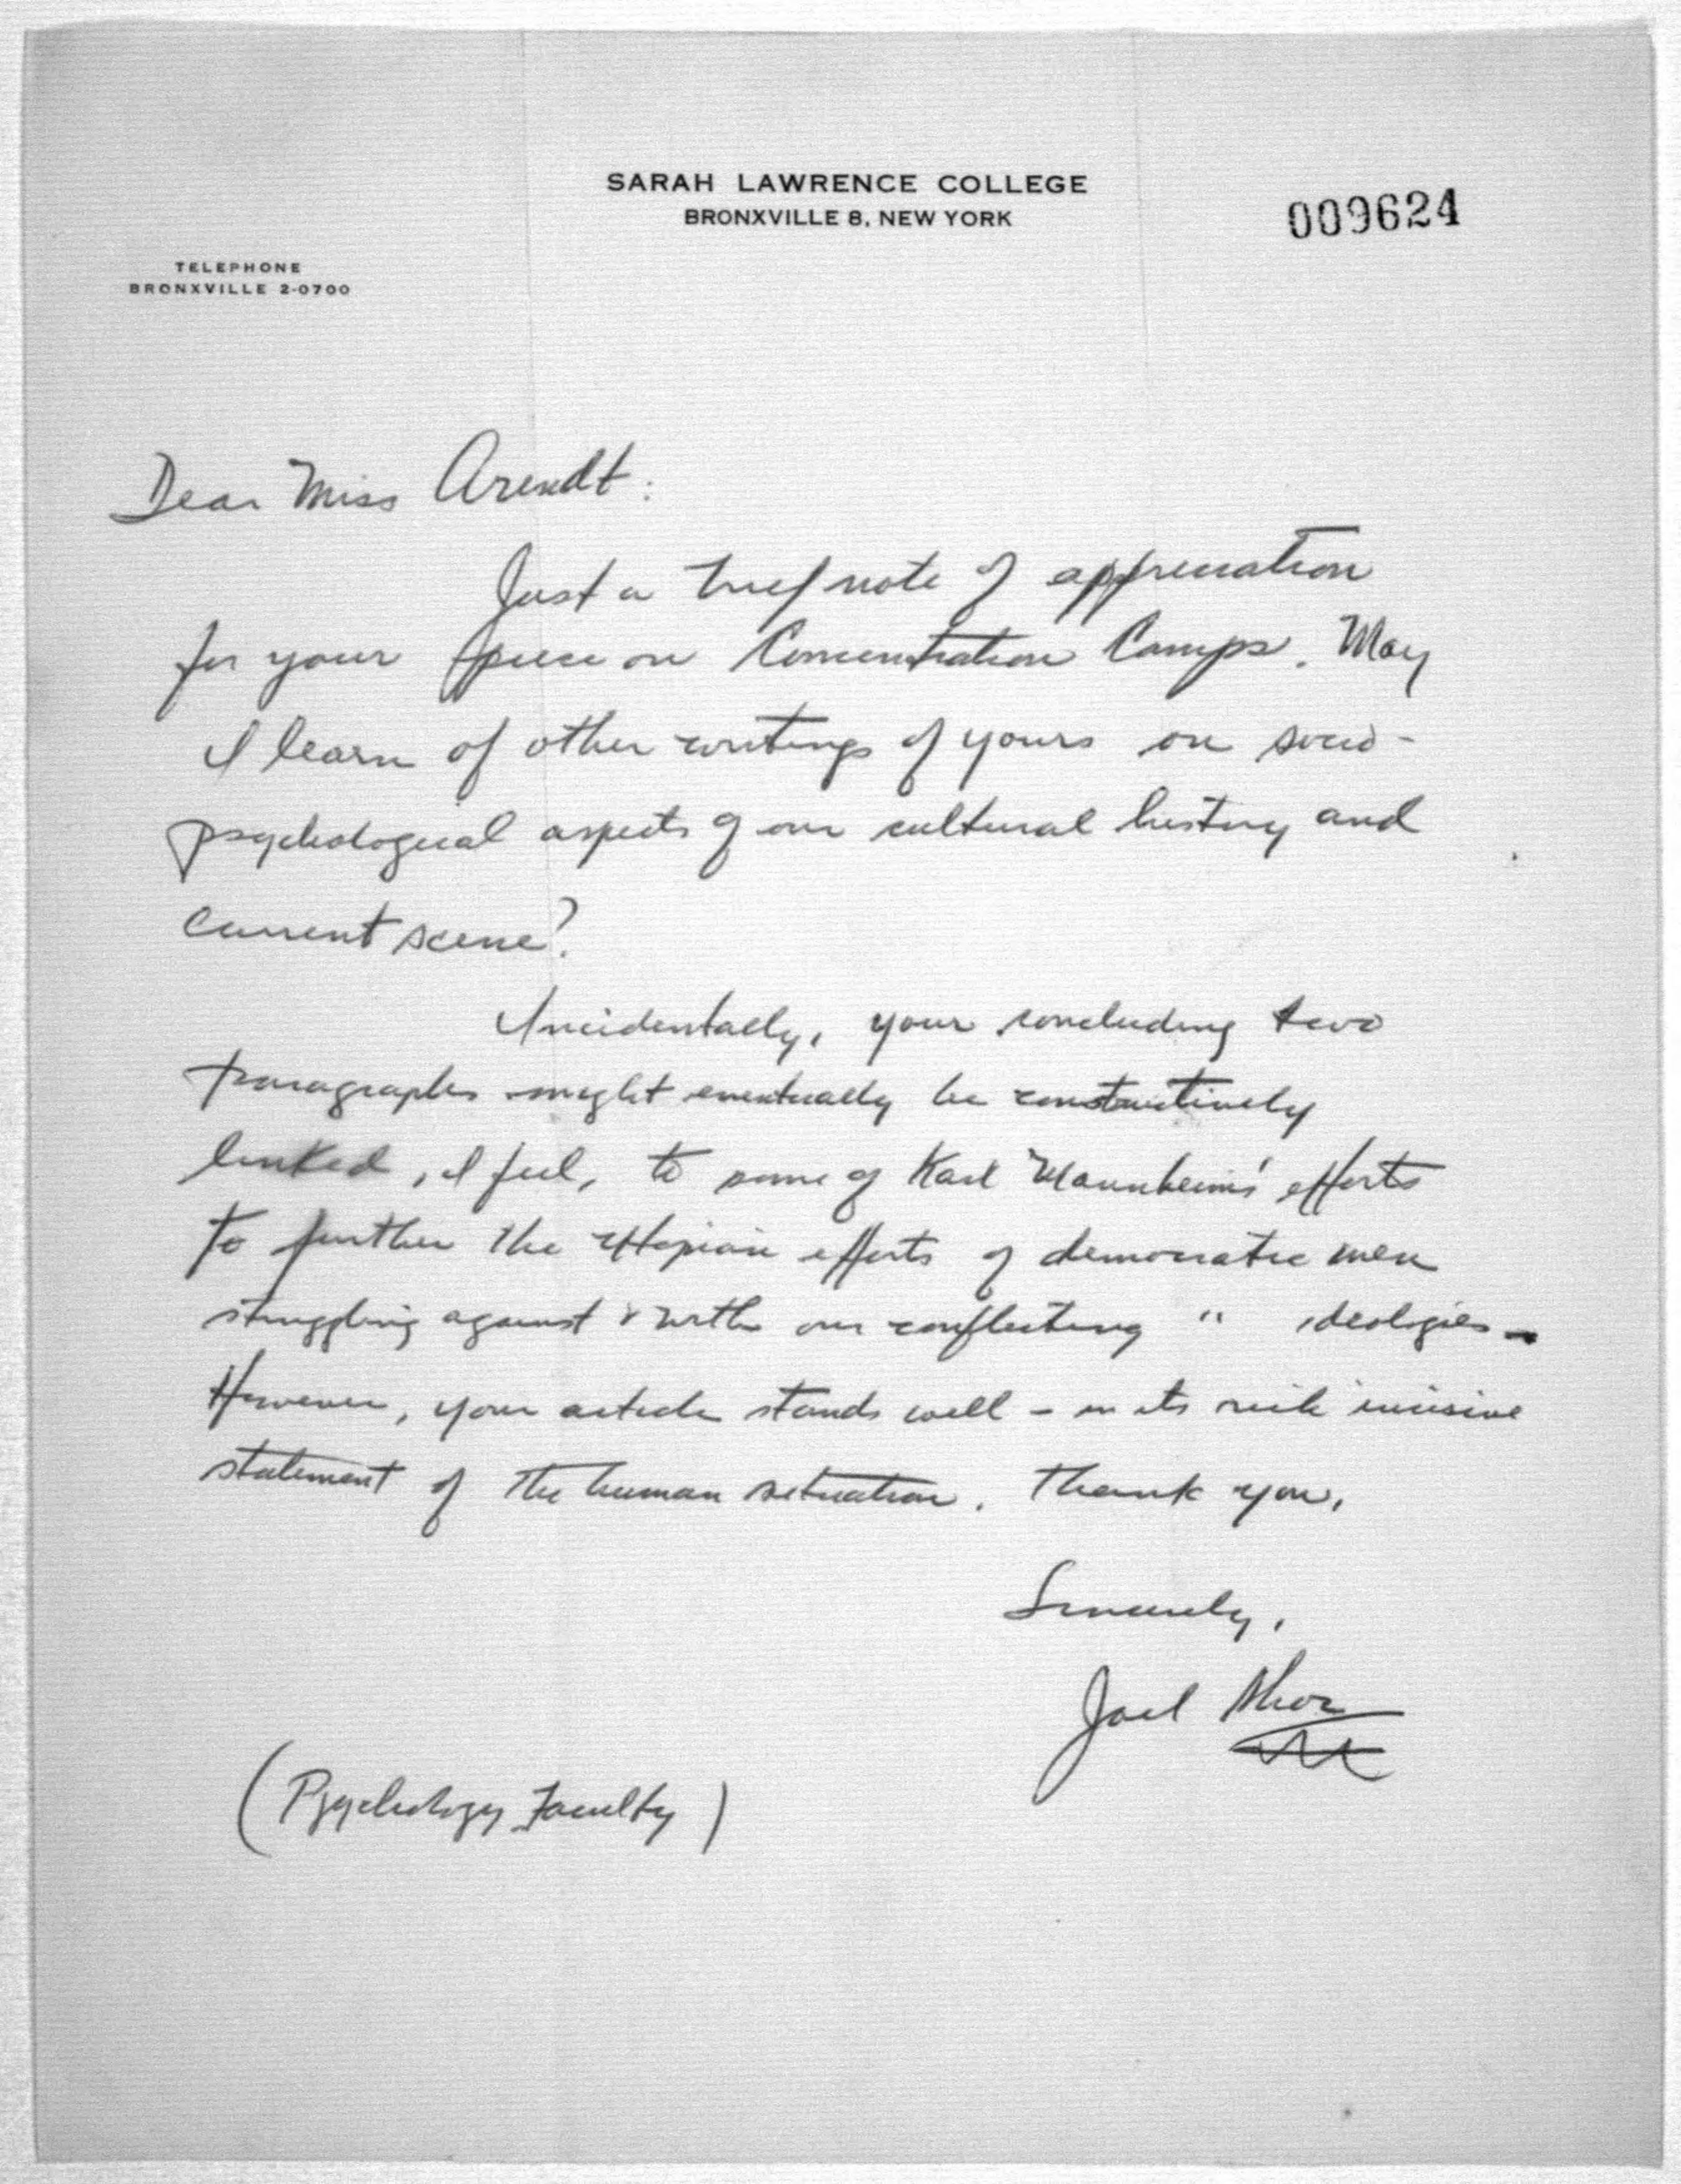 SARAH LAWRENCE COLLEGE
BRONXVILLE 8, NEW YORK
009624
TELEPHONE
BRONXVILLE 2-0700
Dear Miss Arendt:
Just a brief note of appreciation
for your piece on Concentration Camps. May
I learn of other writings of yours on socio-
psychological aspects of our cultural history and
current scene?
Incidentally, your concluding two
paragraphs might eventually be constructively
linked, I feel, to some of Karl Mannheim's efforts
to further the utopian efforts of democratic men
struggling against & with our conflicting " ideologies.
However, your article stands well - in its rich incisive
statement of the human situation. Thank you.
Sincerely,
Joel Shor
(Psychology Faculty)